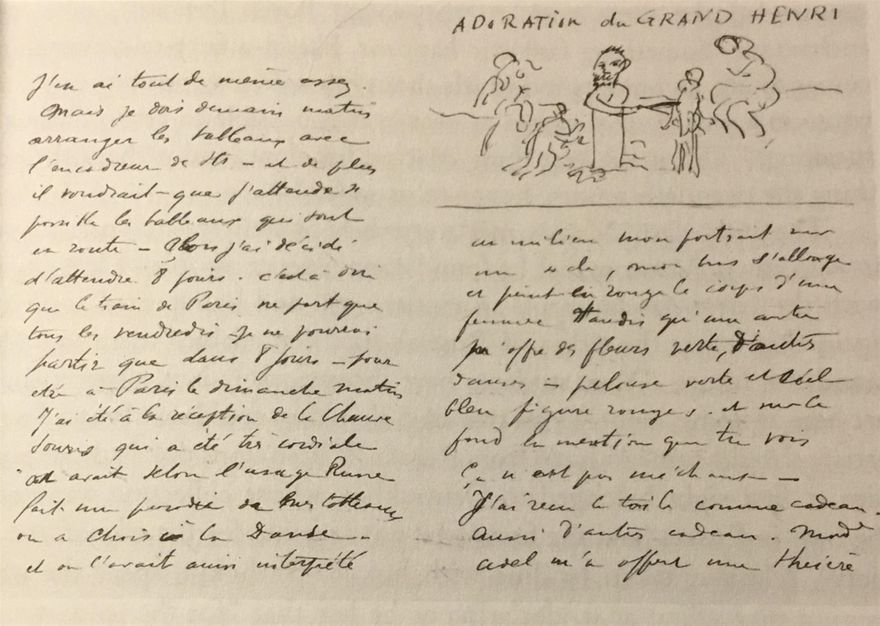 J'en ai tout de même assez
Mais je dois demain matin
arranger les tableaux avec
l'encadreur de Sts — et de plus
il voudrait que j'attende si
possible les tableaux qui sont
en route — Alors j'ai décidé
d'attendre 8 jours. c'est à dire
que le train de Paris ne part que
tous les vendredis je ne pourrai
partir que dans 8 jours — pour
être à Paris le dimanche matin
J'ai été à la réception de la Chauve
Souris qui a été très cordiale
on avait selon l'usage Russe
fait une parodie de mes tableaux
on a choisi la Danse
et on l'avait ainsi interprété
ADORATION du GRAND HENRI
au milieu mon portrait sur
un socle, mon bras s'allonge
et peint en rouge le corps d'une
femme tandis qu'une autre
m'offre des fleurs verte, d'autres
danses — pelouse verte et ciel
bleu figure rouges. et sur le
fond la mention que tu vois
Ça n'est pas méchant —
J'ai reçu la toile comme cadeau.
Aussi d'autres cadeau. Mad
adel m'a offert une théière